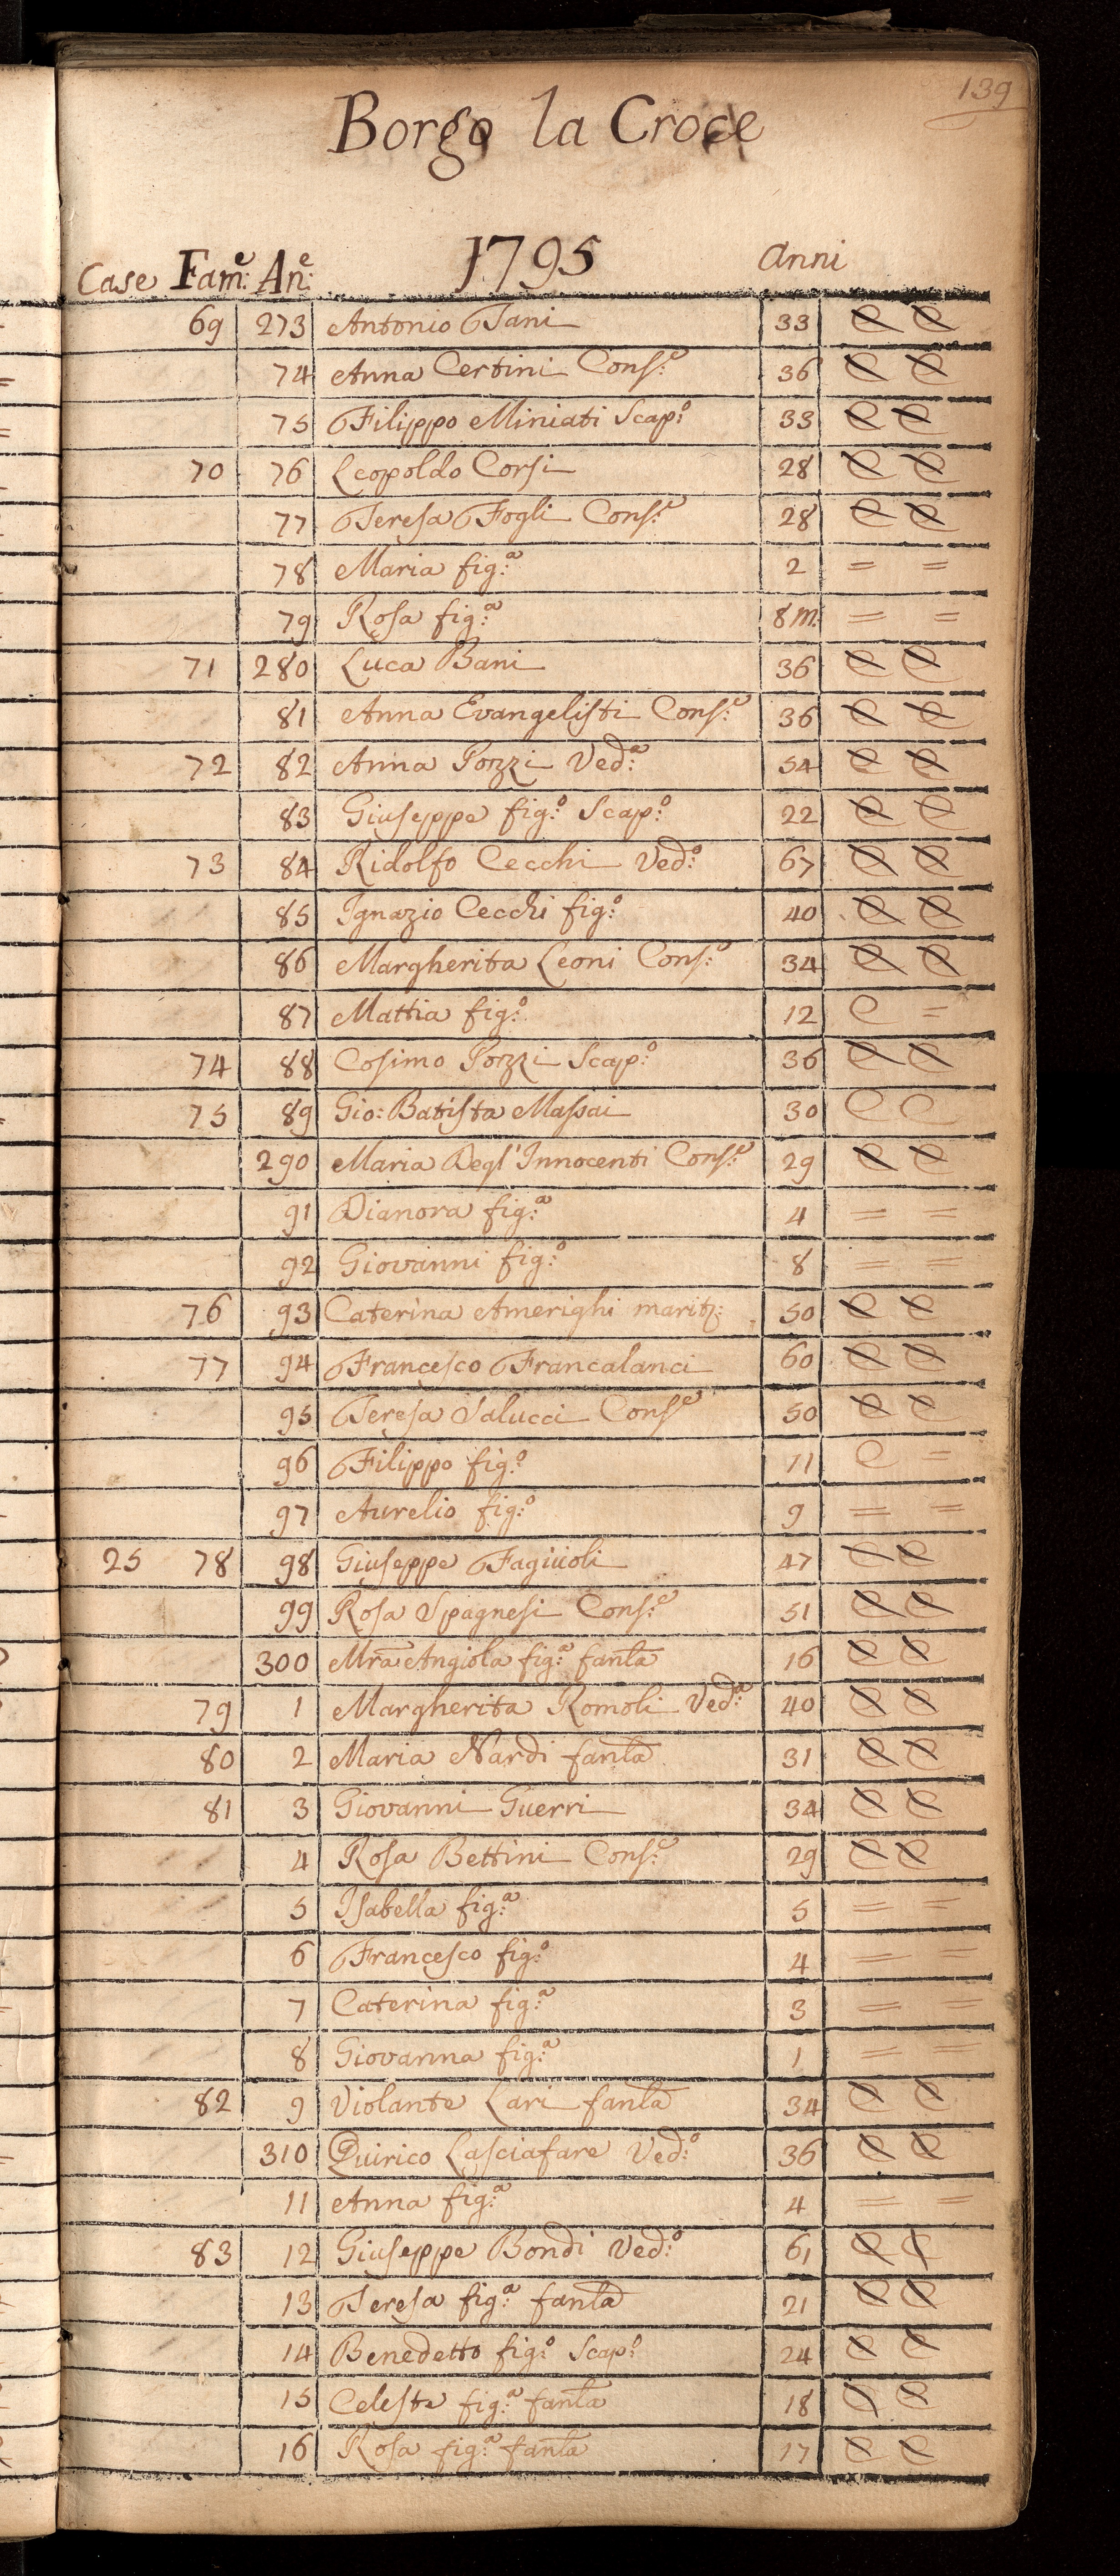 139
Borgo la Croce
Case Fam:e An:e 1795 anni
69 273 Antonio Tani 33 C C
74 Anna Certini Cons:e 36 C C
75 Filippo Miniati Scap:o 33 C C
70 76 Leopoldo Corsi 28 C C
77 Teresa Fogli Cons:e 28 C C
78 Maria fig:a 2 = =
79 Rosa fig:a 8 m: = =
71 280 Luca Bani 36 C C
81 Anna Evangelisti Cons:e 36 C C
72 82 Anna Pozzi Ved:a 54 C C
83 Giuseppe fig:o Scap:o 22 C C
73 84 Ridolfo Cecchi Ved:o 67 C C
85 Ignazio Cecchi fig:o 40 C C
86 Margherita Leoni Cons:e 34 C C
87 Mattia fig:o 12 C =
74 88 Cosimo Pozzi Scap:o 36 C C
75 89 Gio: Batista Massai 30 C C
290 Maria Degl'Innocenti Cons:e 29 C C
91 Dianora fig:a 4 = =
92 Giovanni fig:o 8 = =
76 93 Caterina Amerighi marit: 50 C C
77 94 Francesco Francalanci 60 C C
95 Teresa Salucci Cons:e 50 C C
96 Filippo fig:o 11 C =
97 Aurelio fig:o 9 = =
25 78 98 Giuseppe Fagiuoli 47 C C
99 Rosa Spagnesi Cons:e 51 C C
300 Mra Angiola fig:a fanla 16 C C
79 1 Margherita Romoli Ved:a 40 C C
80 2 Maria Nardi fanla 31 C C
81 3 Giovanni Guerri 34 C C
4 Rosa Bettini Cons:e 29 C C
5 Isabella fig:a 5 = =
6 Francesco fig:o 4 = =
7 Caterina fig:a 3 = =
8 Giovanna fig:a 1 = =
82 9 Violante Lari fanla 34 C C
310 Quirico Lasciafare Ved:o 36 C C
11 Anna fig:a 4 = =
83 12 Giuseppe Bondi Ved:o 61 C C
13 Teresa fig:a fanla 21 C C
14 Benedetto fig:o Scap:o 24 C C
15 Celeste fig:a fanla 18 C C
16 Rosa fig:a fanla 17 C C